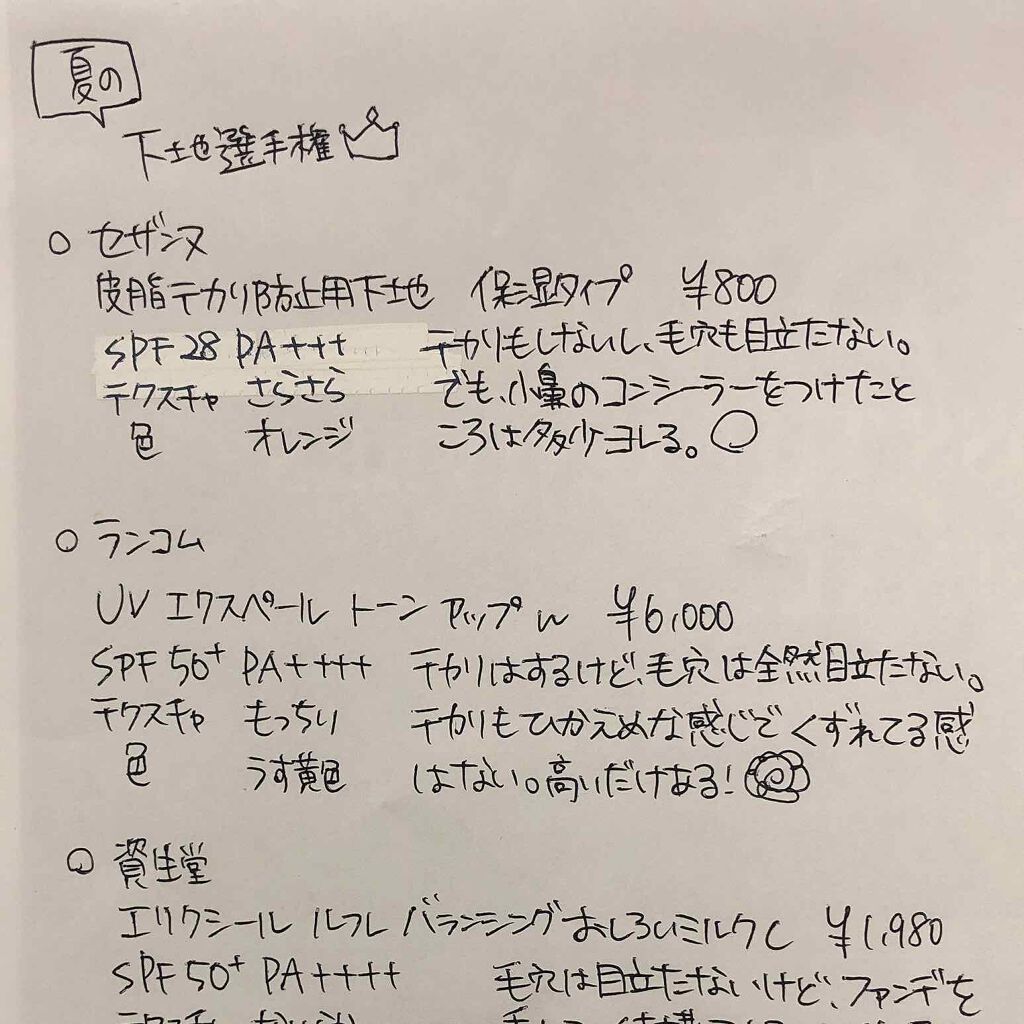 夏の
下地選手権
○ セザンヌ
皮脂テカリ防止用下地 保湿タイプ ¥800
SPF 28 PA+++ テかりもしないし、毛穴も目立たない。
テクスチャ さらさら でも、小鼻のコンシーラーをつけたと
色 オレンジ ころは多少ヨレる。○
○ ランコム
UV エクスペール トーン アップ n ¥6,000
SPF 50+ PA++++ テかりはするけど、毛穴は全然目立たない。
テクスチャ もっちり テかりもひかえめな感じでくずれてる感
色 うす黄色 はない。高いだけある!
○ 資生堂
エリクシール ルフレ バランシング おしろいミルク C ¥1,980
SPF 50+ PA++++ 毛穴は目立たないけど、ファンデを
テクスチャ